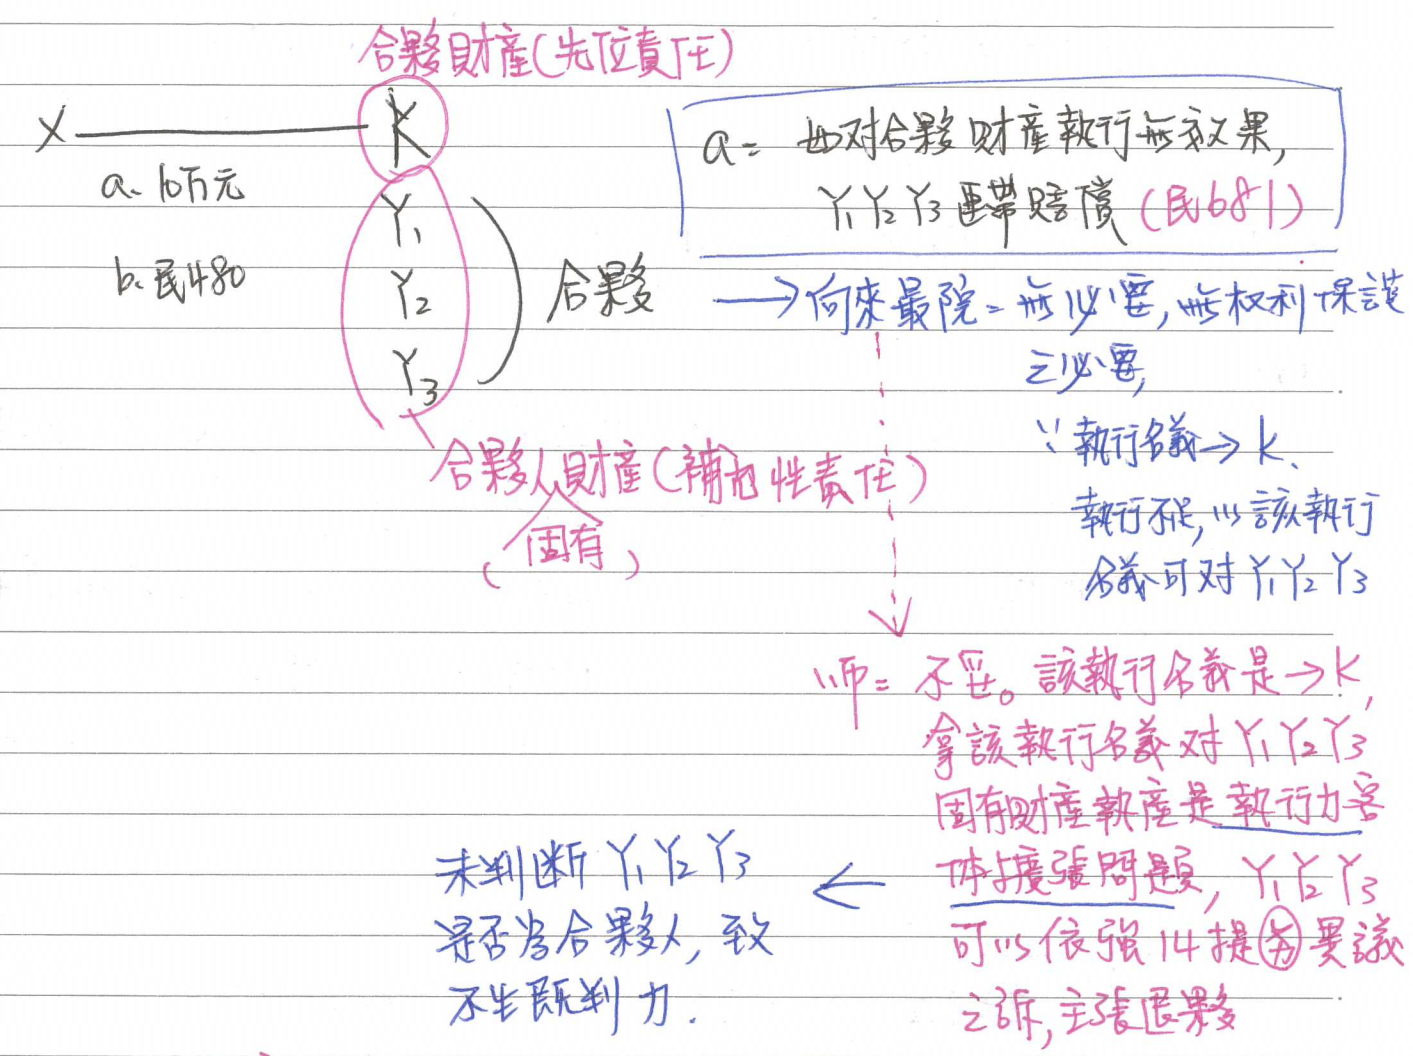 合夥財產(先位責任)
X
K
a. 10万元
b. 民480
Y1
Y2
Y3
合夥
合夥人財產(補充性責任)
(固有)
a= 如对合夥財產執行無效果,
Y1 Y2 Y3 連帶賠償 (民681)
→向來最院=無必要,無权利保護
之必要,
∵執行名義→K、
執行不足,以該執行
名義可对Y1 Y2 Y3
师=不妥。該執行名義是→K,
拿該執行名義对Y1 Y2 Y3
固有財產執產是執行力客
体擴張問題, Y1 Y2 Y3
可以依強14提異議
之訴,主張退夥
← 未判断 Y1 Y2 Y3
是否为合夥人,致
不生既判力.